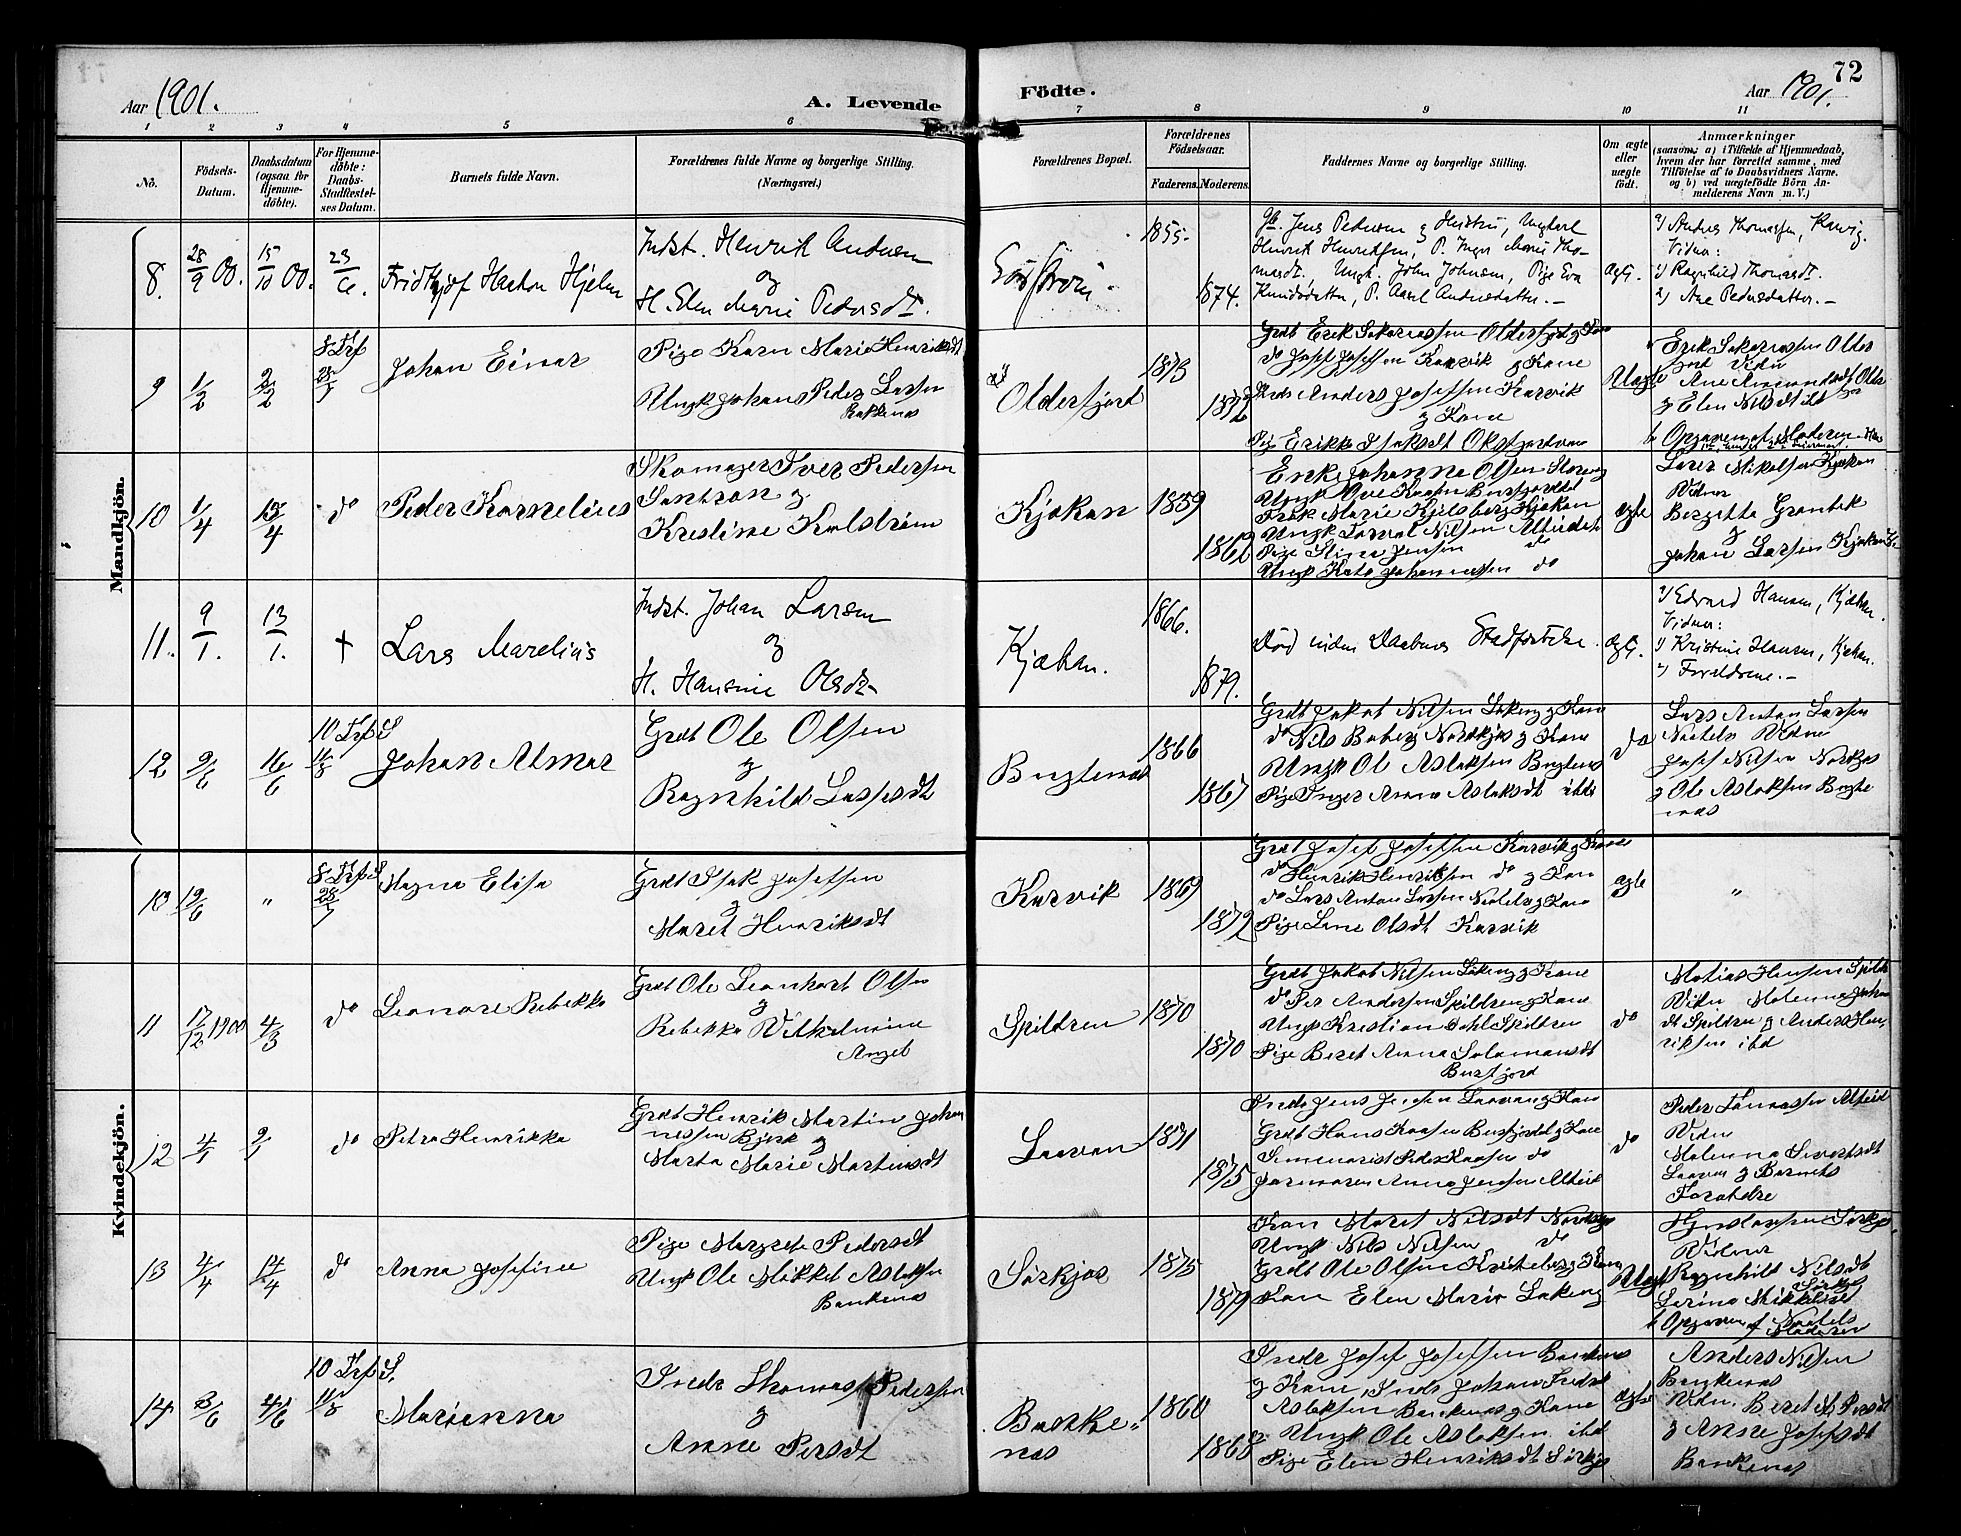 72
Aar 1901.
A. Levende
Födte.
Aar 1901.
1 2 3 4 5 6 7 8 9 10 11
No.
Födsels-
Datum.
Daabsdatum
(ogsaa for
Hjemme-
döbte).
For Hjemme-
döbte:
Daabs-
Stadfæstel-
ses Datum.
Barnets fulde Navn.
Forældrenes fulde Navne og borgerlige Stilling.
(Næringsvei.)
Forældrenes Bopæl.
Forældrenes
Födselsaar.
Faderens.
Moderens.
Faddernes Navne og borgerlige Stilling.
Om ægte
eller
uægte
födt.
Anmærkninger
(saasom: a) i Tilfælde af Hjemmedaab,
hvem der har forrettet samme, med
Tilföielse af to Daabsvidners Navne.
og b) ved uægtefödte Börn An-
melderens Navn m. V.)
Mandkjön.
8.
28/9 00
15/10 00.
23/6.
Fridtjof Haakon Hjelm
Indst. Henrik Andersen
og
H. Elen Marie Pedersdt.
1855.
1874.
Henrik Henriksen, P. Inger Marie Tho-
masdt. Ungk. John Johnsen, Pige Eva
Knudsdatter, P. Aasel Andersdatter. -
ægte.
Vidner:
1) Ragnhild Thomasdt.
2) Ane Pedersdatter. -
9
1/2
2/2
8 Trf
28/7
Johan Einar
Pige Karn Marie Henriksdt
Ungk Johans Peder Larsen
Oldersfjord
1873
1872
Grdt Erik Sakariassen Oldersfjord g Kone
do Josef Josefsen Karvik g Kone
Inds Anders Josefsen Karvik
g Kone
Uægte
Erik Sakariassen Olders
fjord Vidn
Ane Amundsdt Olders
g Elen Nilsdt ibd
b Opgaven af Moderen
10
1/4
15/4
do
Peder Kornelius
Skomager Iver Pedersen
Santran g
Kristine Karlström
Kjækan
1859
1862
Ungk Ove Kaasen Burfjorddal
Frøk Marie Kjelsberg Kjækan
Ungk Torval Nilsen Alteidet
Pige Stina Jensen do
Ungk Kato Johannessen do
ægte
Lars Mikalsen Kjækan
Vidner
Bergitta Grønbek
g
Johan Larsen Kjækan
11.
9/1.
13/1.
†
Lars Marelius
Indst. Johan Larsen
og
H. Hansine Olsdr
Kjækan.
1866.
1879.
Död inden Daabens Stadfæstelse.
ægte.
a) Edvard Hansen, Kjækan.
Vidner:
1) Kristine Hansen, Kjækan.
2) Forældrene. -
12
9/6
16/6
10 Trf S
11/8
Johan Almar
Grdt Ole Olsen
g
Ragnhild Larsdt
Bugtenes
1866
1867
Grdt Jakob Nilsen Løkeng g Kone
do Nils Boberg Nordkjos g Kone
Ungk Ol Aslaksen Bugtenes
Pige Inger Anna Aslaksdt ibd
do
Lars Anton Larsen
Vidner
Josef Nilsen Nordkjos
g Ole Aslaksen Bugte
nes
Kvindekjön.
10
19/6
"
8 Trf S
28/7
Magna Elisa
Grdt Isak Josefsen
g
Maret Henriksdt
Karvik
1869
1872
Grdt Josef Josefsen Karvik g Kone
do Henrik Henriksen do g Kone
do Lars Anton Larsen g Kone
Pige Lene Olsdt Karvik
ægte
"
11
17/12 1900
4/3
do
Leonore Rebekka
Grdt Ole Leonhart Olsen
g
Rebekka Vilhelmine
Angel
Spildren
1870
1870
Grdt Jakob Nilsen Løkeng g Kone
do Per Andersen Spildren g Kone
Ungk Kristian Dahl Spildren
Pige Beret Anna Salamonsdt
Burfjord
do
Matias Hansen Spildr
Vidn Malenna Johan
dt Spildren g Anders Hen
riksen ibd
12
do
Petra Henrikka
Grdt Henrik Martin Johan
nessen Bjerk
g
Marta Marie Martensdt
Laavan
1871
1875
Inds Jens Jensen Laavan g Kone
Grdt Hans Kaasen Burfjordet g Kone
Seminarist Peder Kaasen do
Jormoren Anna Jensen Alteid
do
Peder Tomassen Alteid
Vidn
Malenna Sivertsdt
Laavan g Barnets
Forældre
13
4/4
14/4
do
Anna Josefine
Pige Margrete Pedersdt
Ungk Ole Mikkel Aslaksen
Bankenes
Sörkjos
1875
1879
Kone Maret Nilsdt Nordkjos
Ungk Nils Nilsen do
Grdt Ole Olsen g Kone
Kone Elen Marie Løkeng
Uægt
Vidner
Ragnhild Nilsdt
Sörkjos
b Opgaven af
Moderen
14
3/6
4/6
10 Trf S.
11/8
Marianna
Inds Thomas Pedersen
g
Anne Persdt
Banke-
nes
1860
1868
Inds Josef Josefsen Bankenes
g Kone, Inds Johan Fredrik
Aslaksen Bankenes g Kone
Ungk Ole Aslaksen ibd
Pige Elen Henriksdt Sörkjos
ægte
Anders Nilsen
Bankenes
Vidn. Beret M Persdt
g Anne Josefsdt
Bankenes